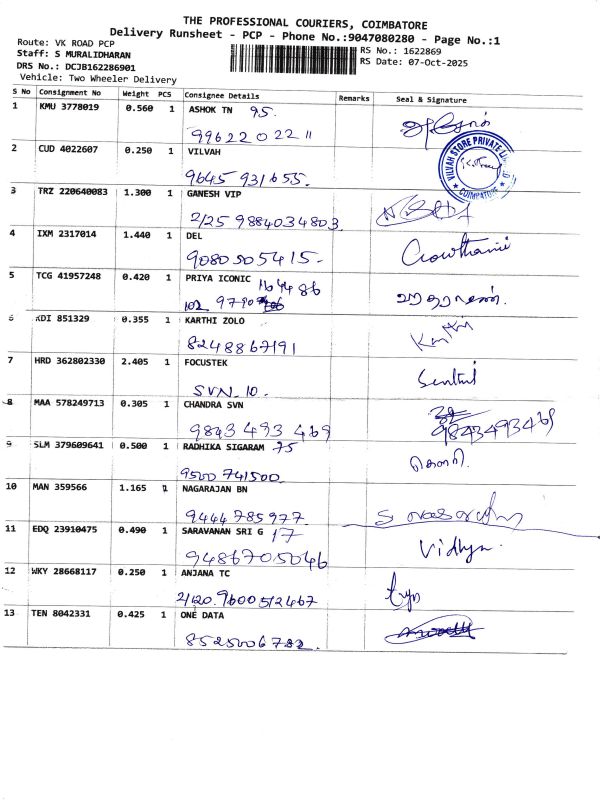 THE PROFESSIONAL COURIERS, COIMBATORE
Delivery Runsheet - PCP - Phone No.:9047080280 - Page No.:1
Route: VK ROAD PCP
RS No.: 1622869
Staff: S MURALIDHARAN
RS Date: 07-Oct-2025
DRS No.: DCJB162286901
Vehicle: Two Wheeler Delivery
S No Consignment No Weight PCS Consignee Details Remarks Seal & Signature
1 KMU 3778019 0.560 1 ASHOK TN 95.
99622 022 11
2 CUD 4022607 0.250 1 VILVAH
9645 931655.
VILVAH STORE PRIVATE
COIMBATORE
3 TRZ 220640083 1.300 1 GANESH VIP
2/25 9884034803
4 IXM 2317014 1.440 1 DEL
9080505415.
5 TCG 41957248 0.420 1 PRIYA ICONIC
102 9790
6 KDI 851329 0.355 1 KARTHI ZOLO
8248867191
7 HRD 362802330 2.405 1 FOCUSTEK
SVN_10. Senthil
8 MAA 578249713 0.305 1 CHANDRA SVN
9843 493 469 9843493469
9 SLM 379609641 0.500 1 RADHIKA SIGARAM 75
9500 741500.
10 MAN 359566 1.165 1 NAGARAJAN BN
9444 785977.
11 EDQ 23910475 0.490 1 SARAVANAN SRI G 17
9486705046 Vidhya
12 WKY 28668117 0.250 1 ANJANA TC
2/120. 9600512467
13 TEN 8042331 0.425 1 ONE DATA
8525006782.